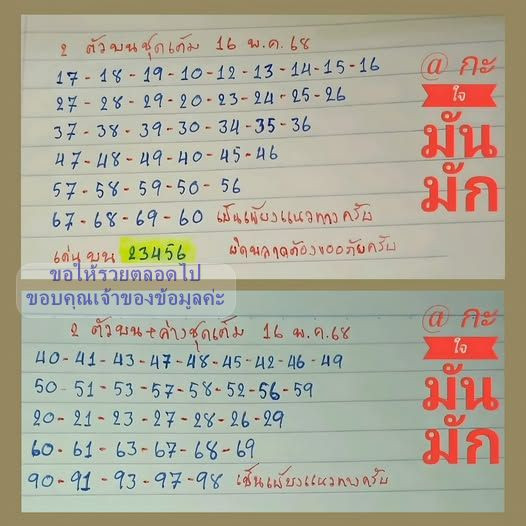 2 ตัวบนชุดเต็ม 16 พ.ค.68
17-18-19-10-12-13-14-15-16
27-28-29-20-23-24-25-26
37-38-39-30-34-35-36
47-48-49-40-45-46
57-58-59-50-56
67-68-69-60 เป็นเพียงแนวทางครับ
เด่นบน 23456 ผิดพลาดต้องขออภัยครับ
@ กะ
ใจ
มัน
มัก
ขอให้รวยตลอดไป
ขอบคุณเจ้าของข้อมูลค่ะ
2 ตัวบน+ล่างชุดเต็ม 16 พ.ค.68
40-41-43-47-48-45-42-46-49
50-51-53-57-58-52-56-59
20-21-23-27-28-26-29
60-61-63-67-68-69
90-91-93-97-98 เป็นเพียงแนวทางครับ
@ กะ
ใจ
มัน
มัก